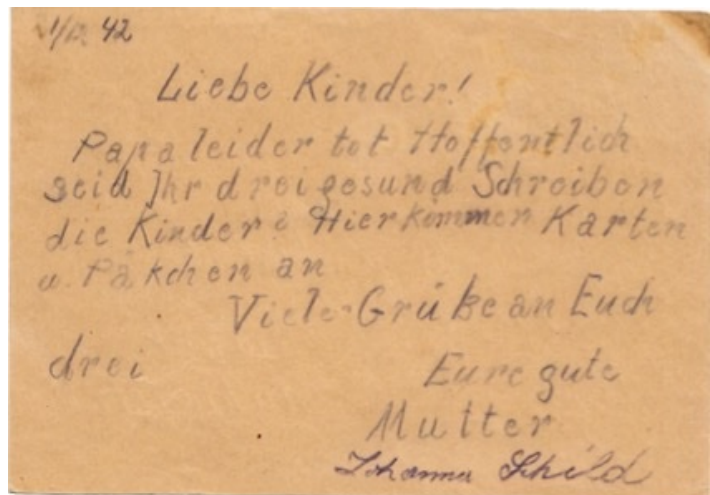 1/12 42
Liebe Kinder!
Papa leider tot Hoffentlich
seid Ihr drei gesund Schreiben
die Kinder? Hier kommen Karten
u. Päkchen an
Viele Grüße an Euch
drei Eure gute
Mutter
Johanna Schild